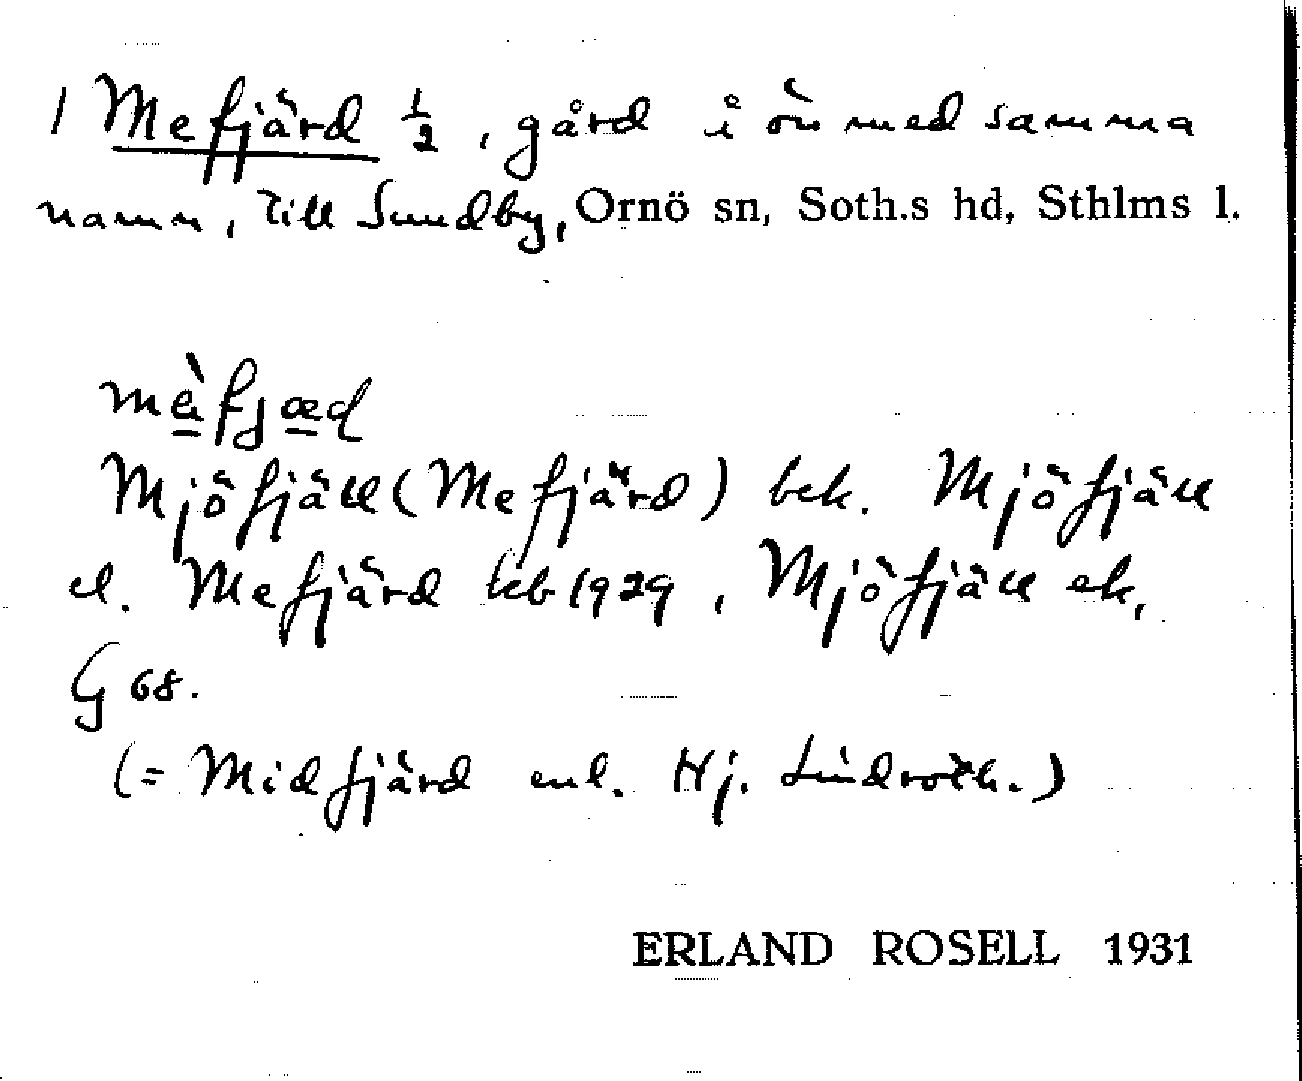 1 Mefjärd ½, gård å ön med samma
namn, till Sundby, Ornö sn, Soth.s hd, Sthlms l.
mèfjæd
Mjöfjäll (Mefjärd) bek. Mjöfjäll
el. Mefjärd kb 1929, Mjöfjäll ek,
G 68.
(= Midfjärd enl. Hj. Lindroth.)
ERLAND ROSELL 1931